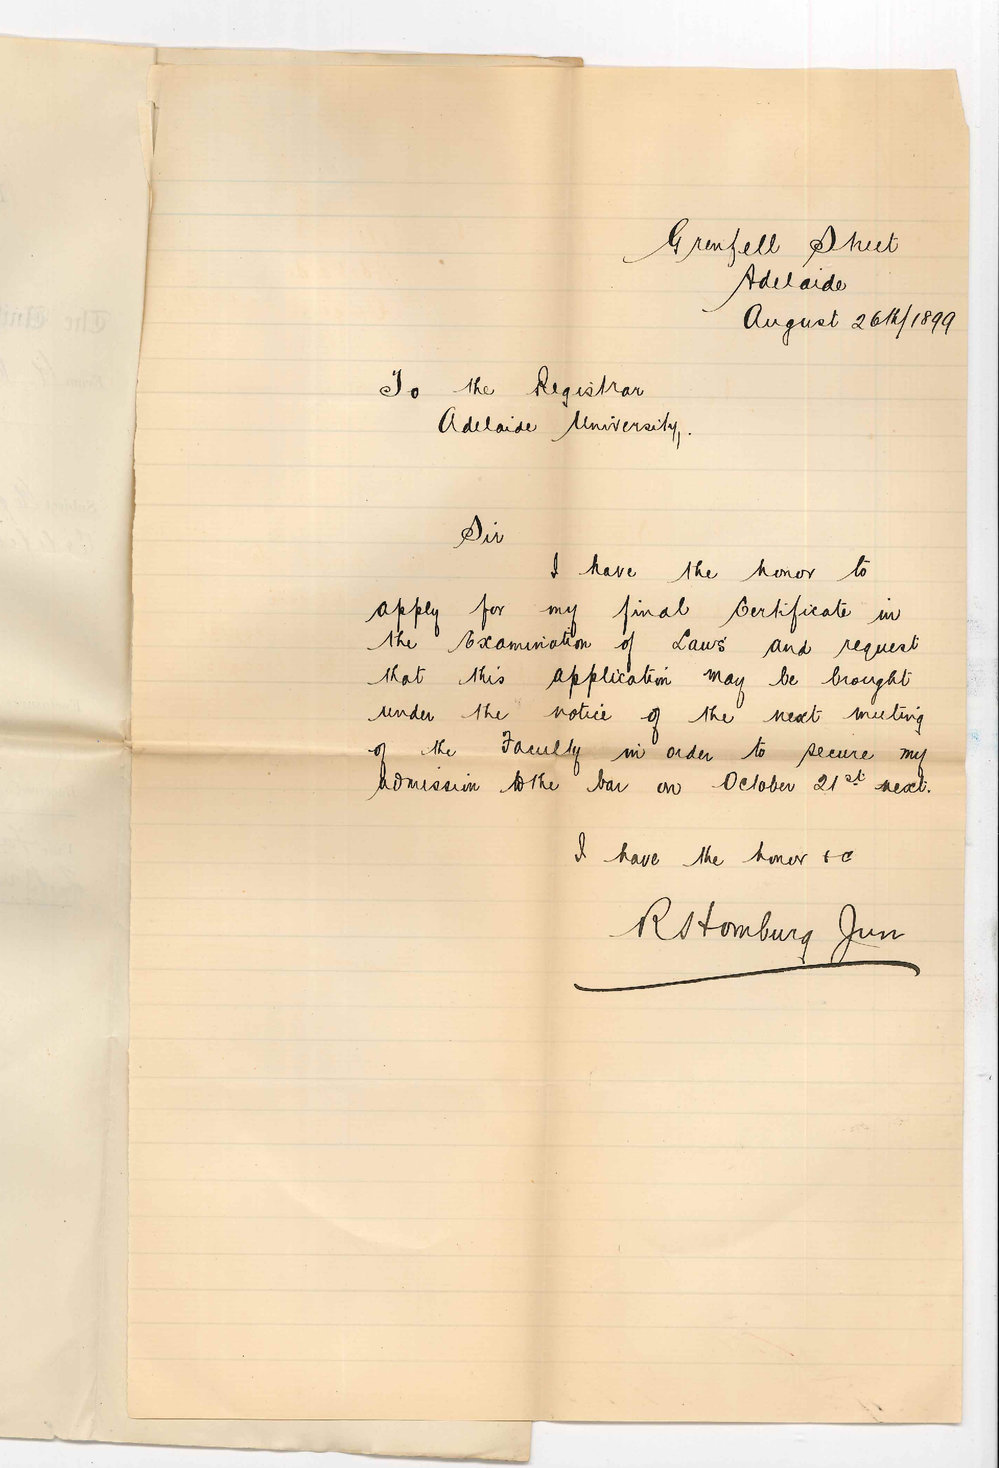 Grenfell Street
Adelaide
August 26th/1899
To the Registrar
Adelaide University.
Sir
I have the honor to
apply for my final Certificate in
the Examination of Laws and request
that this application may be brought
under the notice of the next meeting
of the Faculty in order to secure my
admission to the bar on October 21st next.
I have the honor &c
R Homburg Jun
The Uni
From